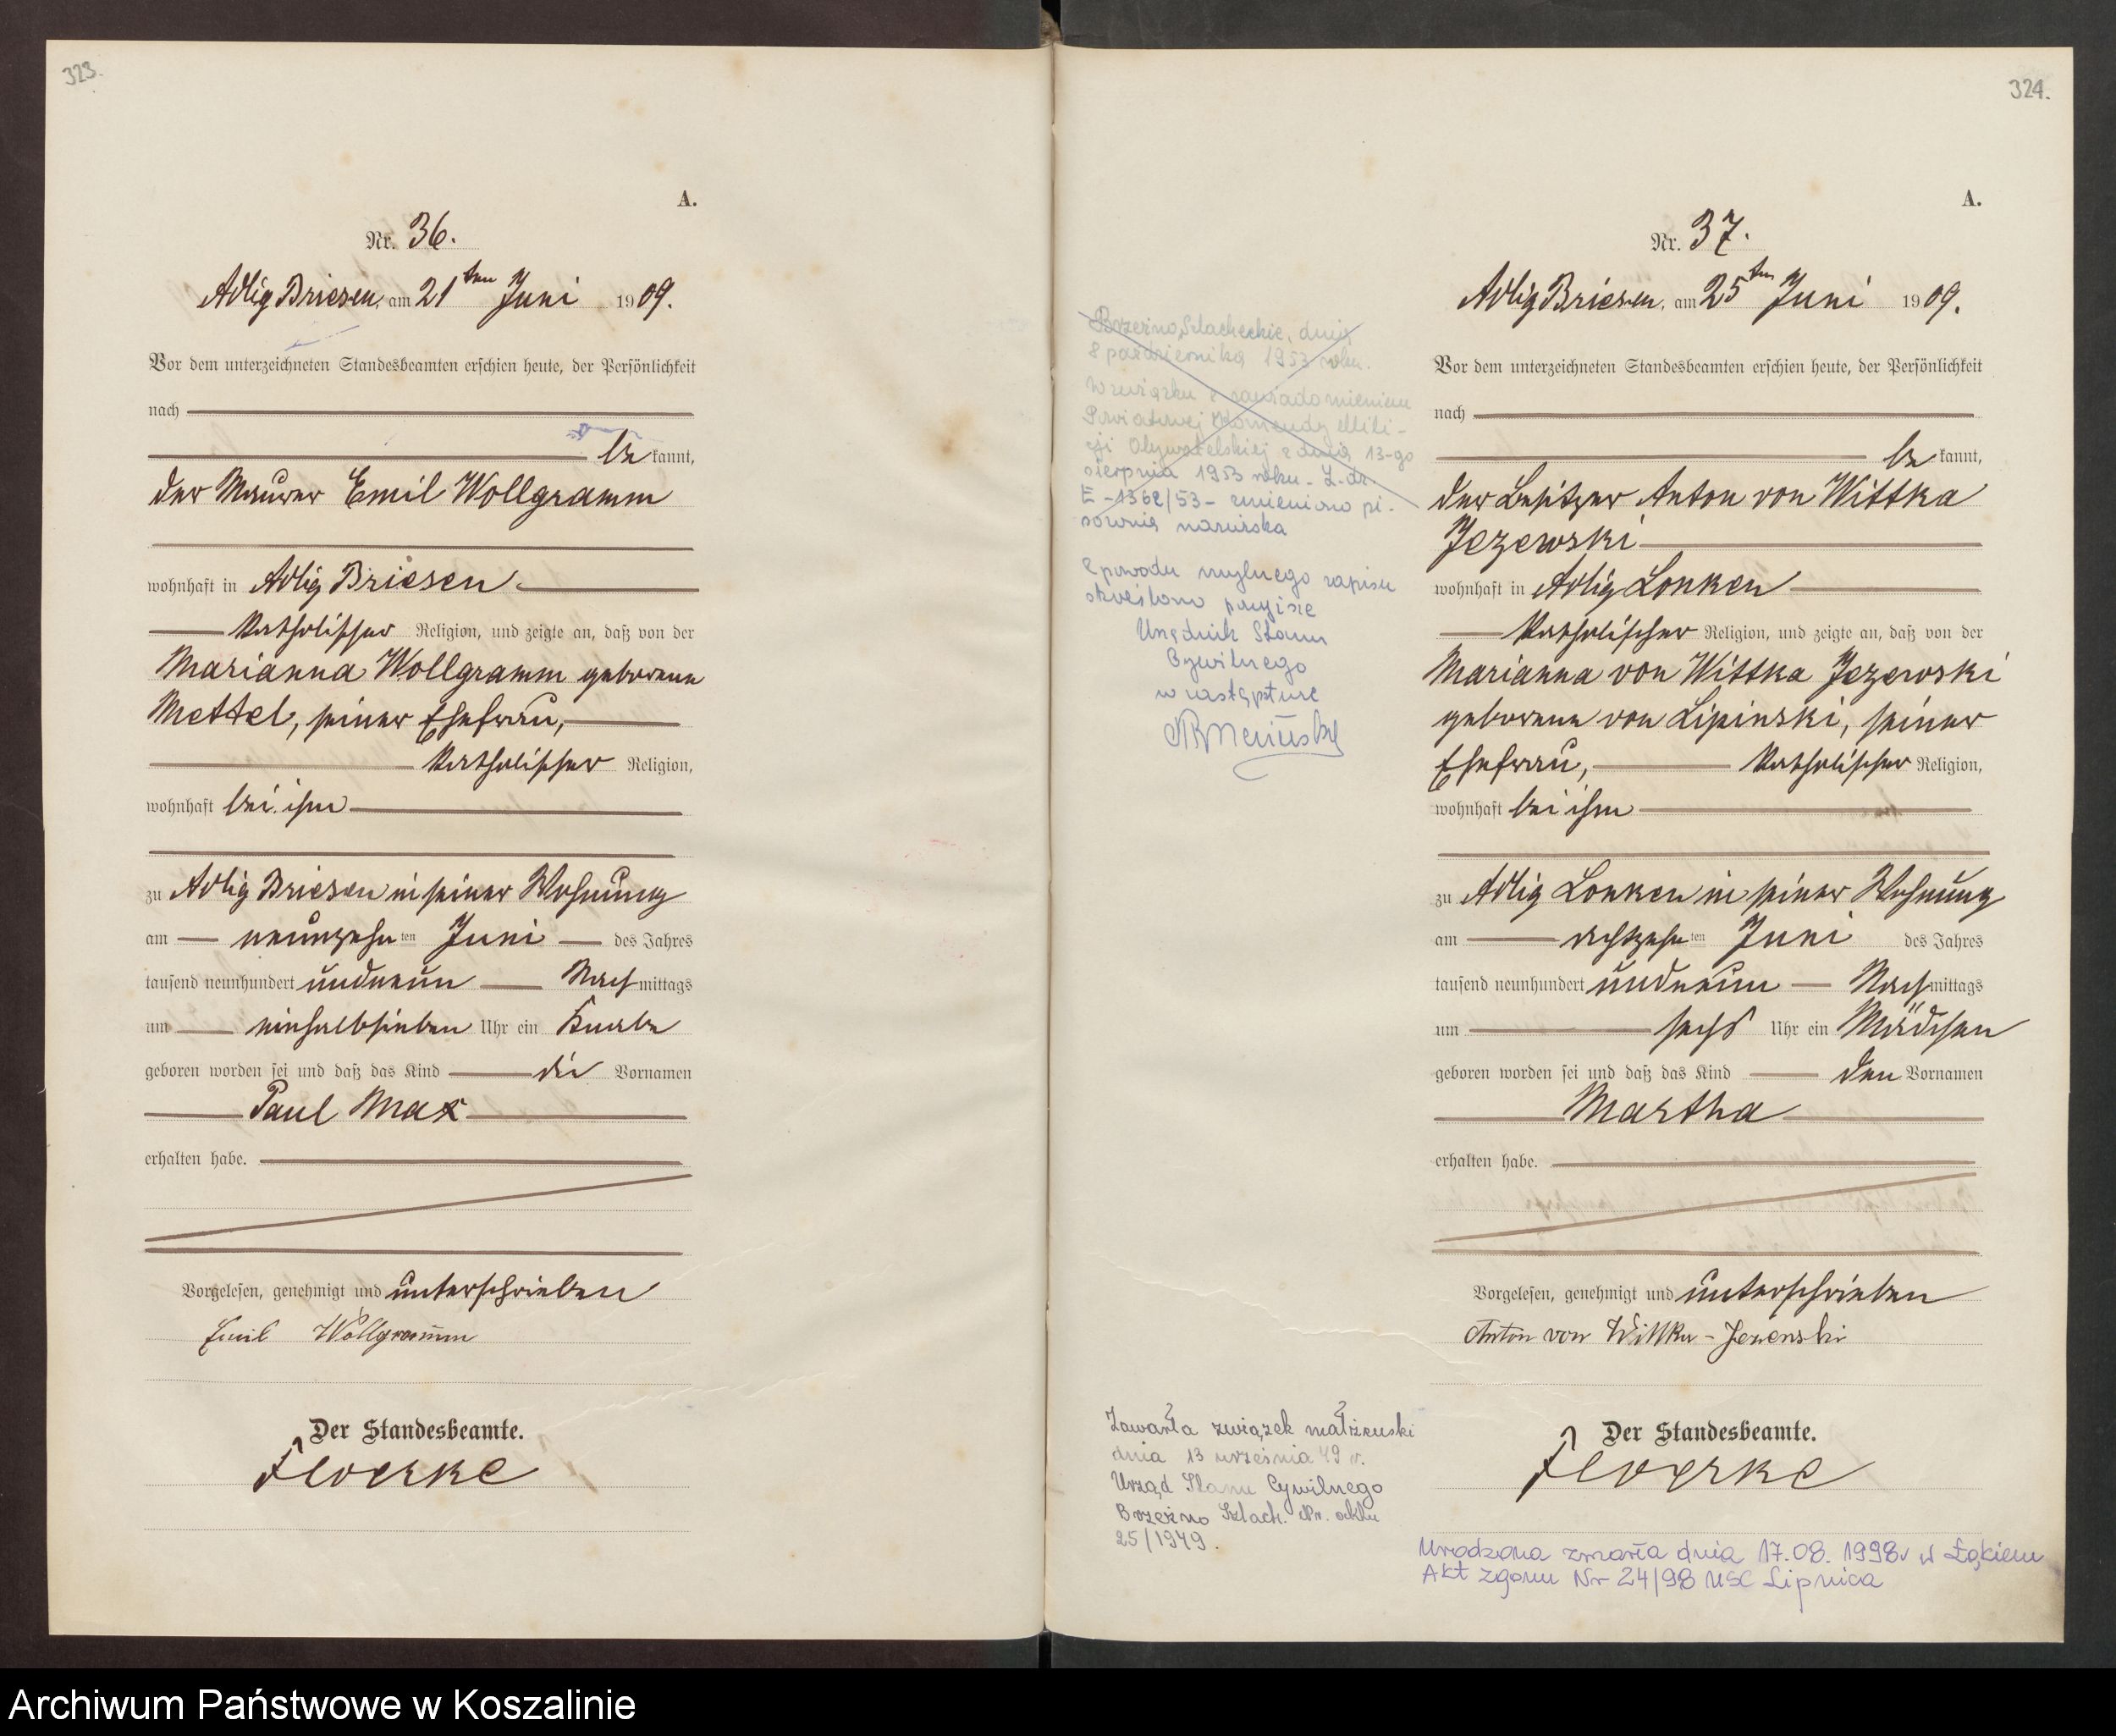 323.
A.
Nr. 36.
Adlig Briesen, am 21ten Juni 1909.
Vor dem unterzeichneten Standesbeamten erschien heute, der Persönlichkeit
nach
be kannt,
der Maurer Emil Wollgramm
wohnhaft in Adlig Briesen
katholischer Religion, und zeigte an, daß von der
Marianna Wollgramm geborene
Mettel, seiner Ehefrau,
katholischer Religion,
wohnhaft bei ihm
zu Adlig Briesen in seiner Wohnung
am neunzehnten Juni des Jahres
tausend neunhundert undneun Nachmittags
um einhalbsieben Uhr ein Knabe
geboren worden sei und daß das Kind die Vornamen
Paul Max
erhalten habe.
Vorgelesen, genehmigt und unterschrieben
Emil Wollgramm
Der Standesbeamte.
Floerke
324.
A.
Nr. 37.
Adlig Briesen, am 25ten Juni 1909.
Vor dem unterzeichneten Standesbeamten erschien heute, der Persönlichkeit
nach
be kannt,
der Besitzer Anton von Wittka
Jezewski
wohnhaft in Adlig Lonken
katholischer Religion, und zeigte an, daß von der
Marianna von Wittka Jezewski
geborene von Lipinski, seiner
Ehefrau, katholischer Religion,
wohnhaft bei ihm
zu Adlig Lonken in seiner Wohnung
am achtzehnten Juni des Jahres
tausend neunhundert undneun Nachmittags
um sechs Uhr ein Mädchen
geboren worden sei und daß das Kind den Vornamen
Martha
erhalten habe.
Vorgelesen, genehmigt und unterschrieben
Anton von Wittka-Jezewski
Der Standesbeamte.
Floerke
Brzeźno Szlacheckie, dnia
8 października 1953 roku.
W związku z zawiadomieniem
Powiatowej Komendy Mili-
cji Obywatelskiej z dnia 13-go
sierpnia 1953 roku - L. dz.
E-1362/53 - zmieniono pi-
sownię nazwiska
Z powodu mylnego zapisu
skreślono powyższe
Urzędnik Stanu
Cywilnego
w zastępstwie
Zawarła związek małżeński
dnia 13 września 49 r.
Urząd Stanu Cywilnego
Brzeźno Szlach. Nr. aktu
25/1949.
Urodzona zmarła dnia 17.08.1998r w Łąkiem
Akt zgonu Nr 24/98 USC Lipnica
Archiwum Państwowe w Koszalinie